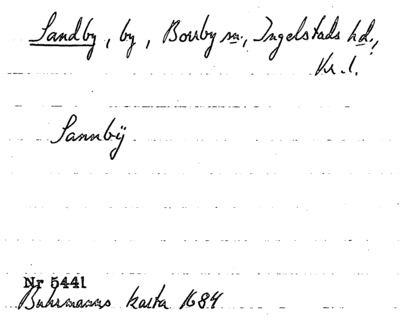 Sandby, by, Borrby sn., Ingelstads hd.,
Kr. l.
Sannbÿ
Nr 5441
Buhrmanns karta 1684